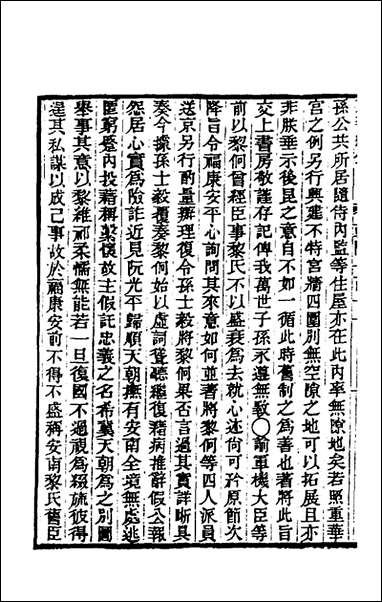 孫公共所居隨侍內監等住屋亦在此內率無隙地矣若照重華
宮之例另行興建不特宮牆四圍別無空隙之地可以拓展且亦
非朕垂示後昆之意自不如一循此時舊制之為善也著將此旨
交上書房敬謹存記俾我萬世子孫永遵無斁○諭軍機大臣等
前以黎侗曾經臣事黎氏不以盛衰為去就心迹尚可矜原節次
降旨令福康安平心詢問其來意如何並著將黎侗等四人派員
送京另行酌量辦理復令孫士毅將黎侗果否言過其實詳晰具
奏今據孫士毅覆奏黎侗始以虛詞聳聽繼復藉病推辭假公報
怨居心實為險詐近見阮光平歸順天朝撫有安南全境無處逃
匿窮蹙內投藉稱棄懷故主假託忠義之名希冀天朝為之別圖
舉事其意以黎維祁柔懦無能若一旦復國不過視為綴旒彼得
逞其私謀以成己事故於福康安前不得不盛稱安南黎氏舊臣